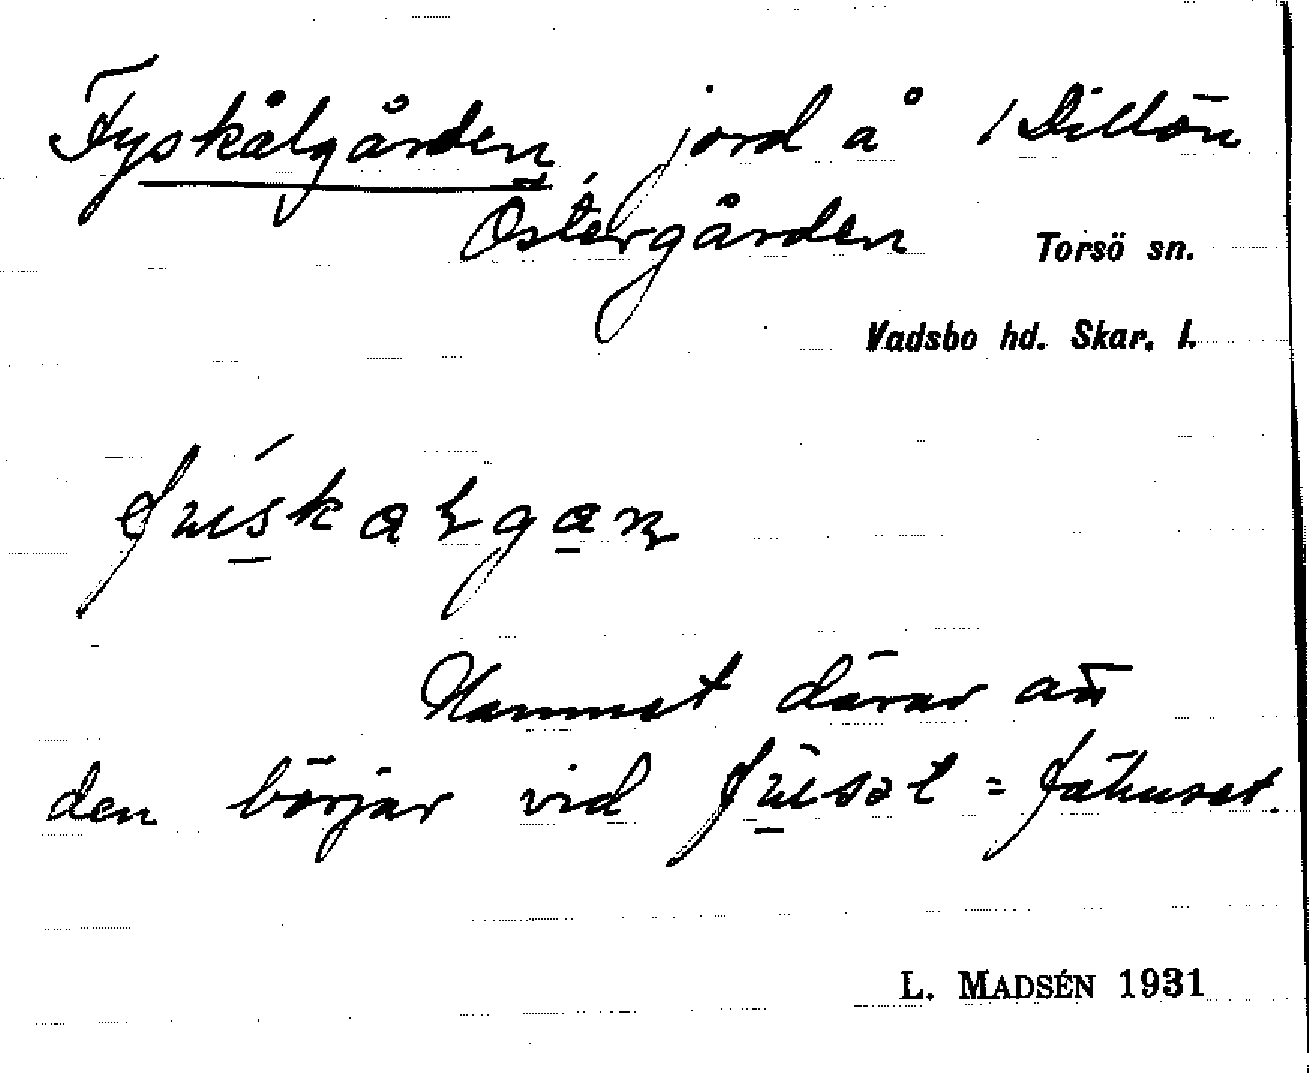 Fyskålgården, jord å 1 Dillön
Östergården
Torsö sn.
Vadsbo hd. Skar. l.
Namnet därav att
den börjar vid = fähuset.
L. MADSÉN 1931